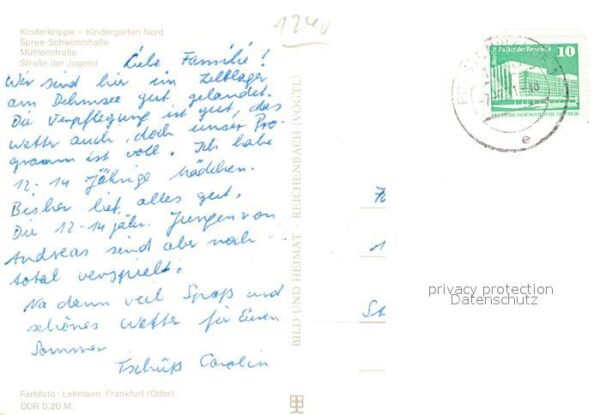 1240
Kinderkrippe – Kindergarten Nord
Spree-Schwimmhalle
Mühlenstraße
Straße der Jugend
Liebe Familie!
Wir sind hier im Zeltlager
am Dehmsee gut gelandet.
Die Verpflegung ist gut, das
Wetter auch, doch unser Pro-
gramm ist voll. Ich habe
12-14 Jährige Mädchen.
Bisher lief alles gut.
Die 12-14jähr. Jungen von
Andreas sind aber noch
total verspielt.
Na dann viel Spaß und
schönes Wetter für Euren
Sommer
Tschüß Carolin
Farbfoto: Lehmann, Frankfurt (Oder)
DDR 0,20 M.
BILD UND HEIMAT · REICHENBACH (VOGTL)
Palast der Republik 10
DEUTSCHE DEMOKRATISCHE REPUBLIK
privacy protection
Datenschutz